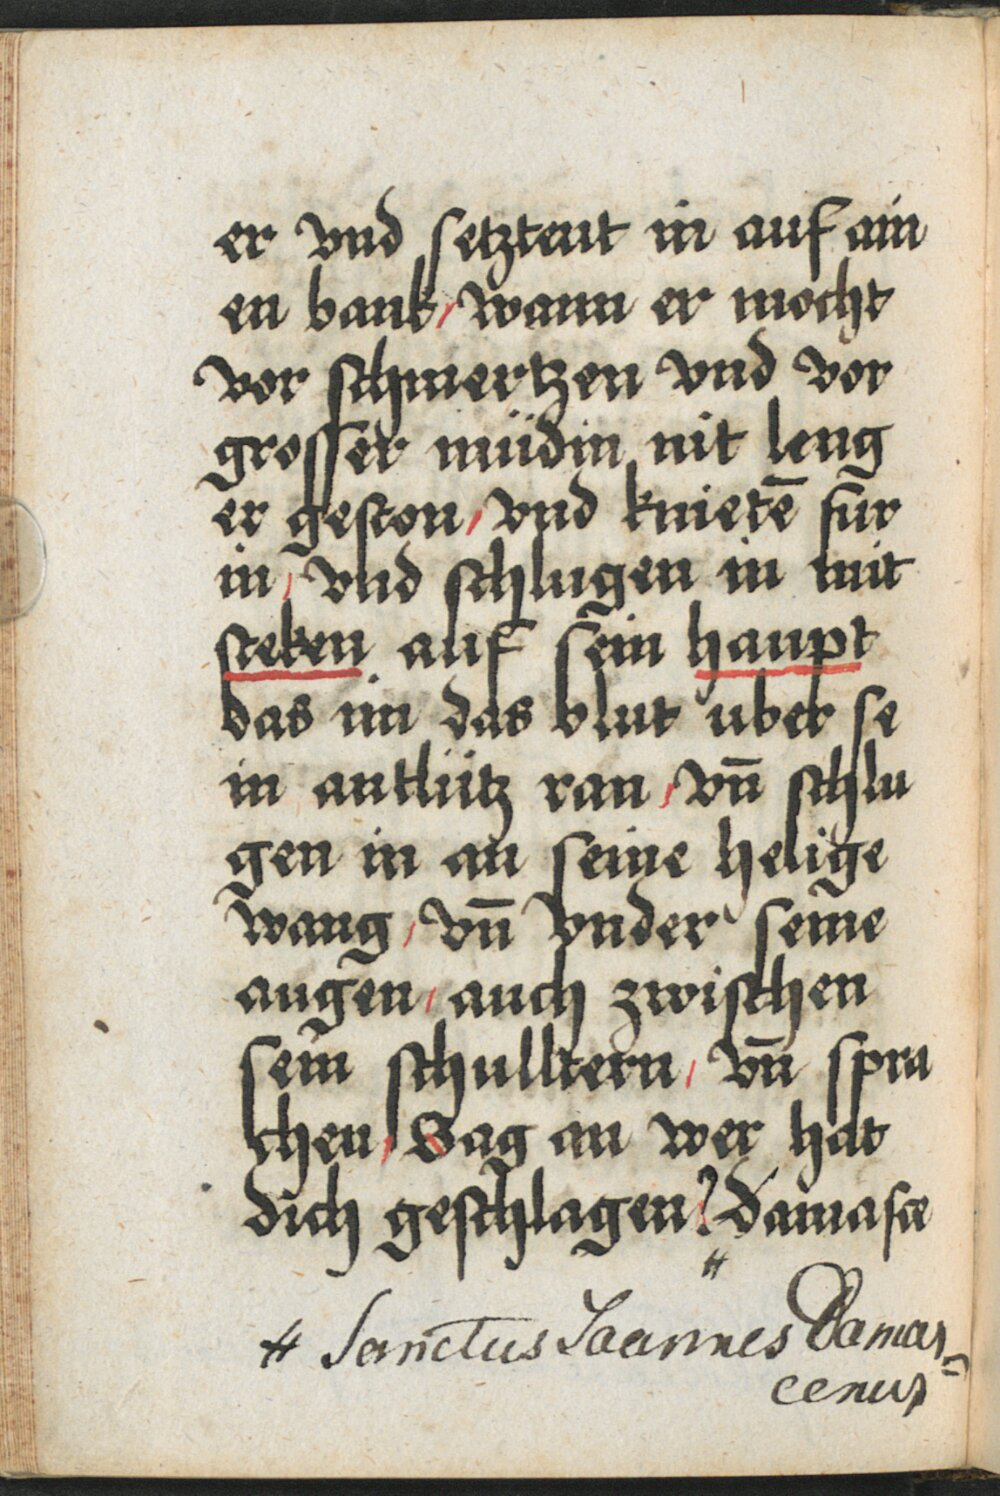 er vnd setztent in auf ain
en bank / wann er mocht
vor schmertzen vnd vor
grosser müdin nit leng
er geston / vnd knietē für
in / vnd schlugen in mit
steken auf sein haupt
das im das blut uber se
in antlütz ran / vn̄ schlu
gen in an seine helige
wang / vn̄ vnder seine
augen / auch zwischen
sein schulltern / vn̄ spra
chen / Sag an wer hat
dich geschlagen? damasce
#
# Sanctus Joannes Damas=
cenus